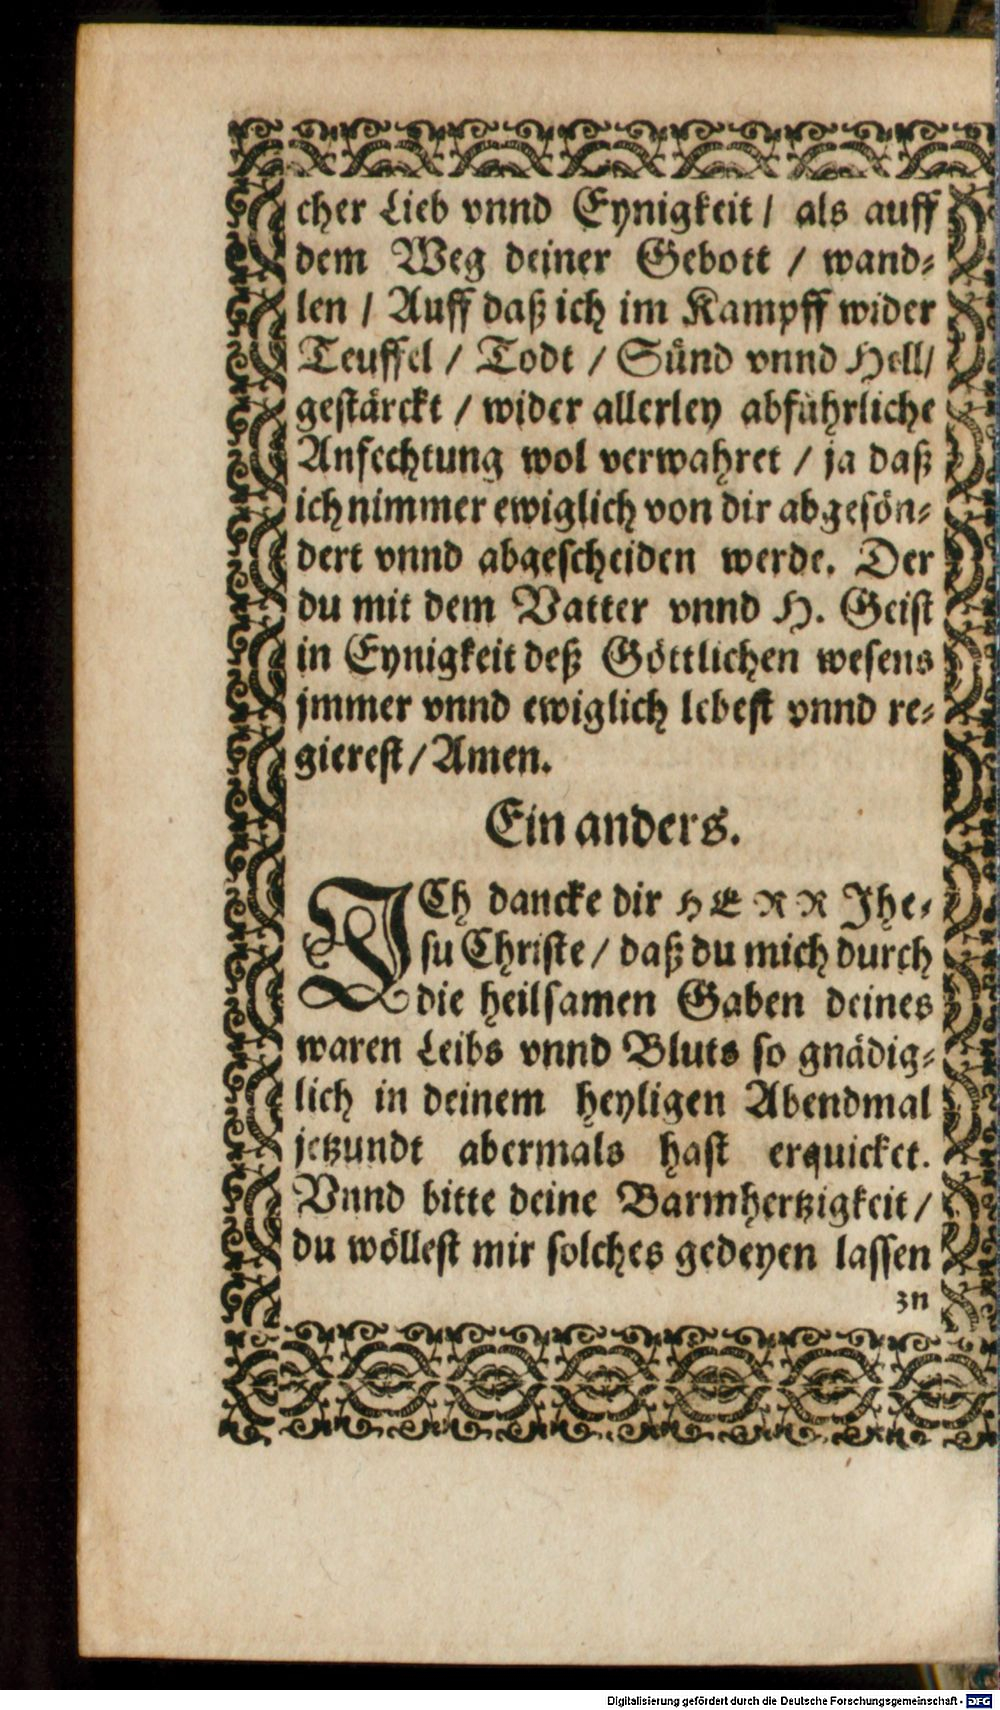 cher Lieb vnnd Eynigkeit / als auff
dem Weg deiner Gebott / wand-
len / Auff daß ich im Kampff wider
Teuffel / Todt / Sünd vnnd Hell /
gestärckt / wider allerley abführliche
Anfechtung wol verwahret / ja daß
ich nimmer ewiglich von dir abgesön-
dert vnnd abgescheiden werde. Der
du mit dem Vatter vnnd H. Geist
in Eynigkeit deß Göttlichen wesens
jmmer vnnd ewiglich lebest vnnd re-
gierest / Amen.
Ein anders.
ICh dancke dir HERR Jhe-
su Christe / daß du mich durch
die heilsamen Gaben deines
waren Leibs vnnd Bluts so gnädig-
lich in deinem heyligen Abendmal
jetzundt abermals hast erquicket.
Vnnd bitte deine Barmhertzigkeit /
du wöllest mir solches gedeyen lassen
zu
Digitalisierung gefördert durch die Deutsche Forschungsgemeinschaft - DFG